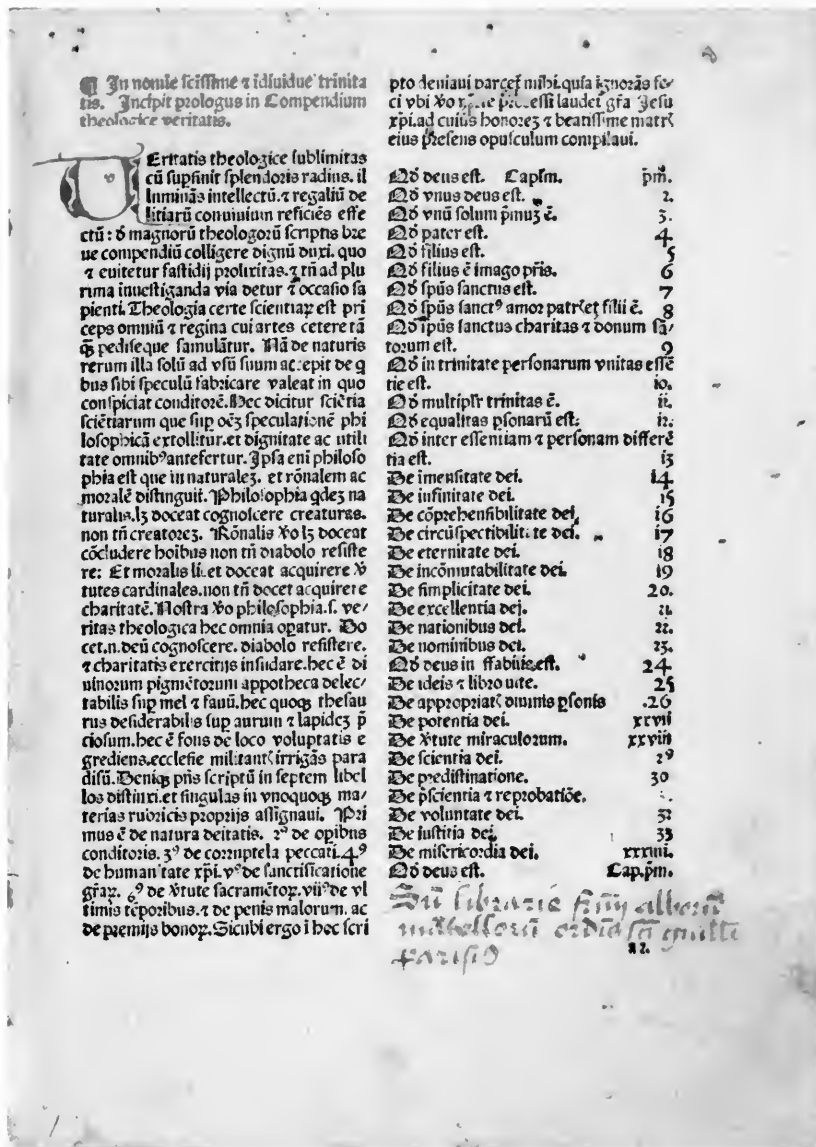 ¶ In nomīe scīssime ⁊ īdiuidue trinita
tis. Incipit prologus in Compendium
theologice veritatis.
VEritatis theologice sublimitas
cū supsinit splendoris radius. il
luminās intellectū.⁊ regaliū de
litiarū conuiuium reficiēs effe
ctū: ō magnorū theologorū scriptis bre
ue compendiū colligere dignū duxi. quo
⁊ euitetur fastidij prolixitas.⁊ tn̄ ad plu
rima inuestiganda via detur ⁊ occasio sa
pienti. Theologia certe scientiaꝝ est pri
ceps omniū ⁊ regina cui artes cetere tā
q̄ꝫ pediseque famulātur. Nā de naturis
rerum illa solū ad vsū suum accepit de q
bus sibi speculū fabricare valeat in quo
conspiciat conditorē. Hec dicitur sciētia
sciētiarum que sup oēꝫ speculationē phi
losophicā extollitur.et dignitate ac utili
tate omnibꝰ antefertur. Ipsa eni philoso
phia est que in naturaleꝫ. et rōnalem ac
moralē distinguit. Philosophia qdeꝫ na
turalis.lꝫ doceat cognoscere creaturas.
non tn̄ creatoreꝫ. Rōnalis v̄o lꝫ doceat
cōcludere hoibus non tn̄ diabolo resiste
re: Et moralis licet doceat acquirere v̄
tutes cardinales.non tn̄ docet acquirere
charitatē. Nostra v̄o philosophia.s. ve/
ritas theologica hec omnia opatur. Do
cet.n.deū cognoscere. diabolo resistere.
⁊ charitatis exercitijs insudare.hec ē di
uinorum pigmētorum appotheca delec/
tabilis sup mel ⁊ fauū.hec quoqꝫ thesau
rus desiderabilis sup aurum ⁊ lapideꝫ p̄
ciosum.hec ē fons de loco voluptatis e
grediens.ecclesie militantꝭ irrigās para
disū. Deniqꝫ pn̄s scriptū in septem libel
los distinxi.et singulas in vnoquoqꝫ ma/
terias rubricis proprijs assignaui. Pri
mus ē de natura deitatis. 2ꝰ de opibus
conditoris. 3ꝰ de corruptela peccati. 4ꝰ
de humanitate xp̄i. vꝰ de sanctificatione
gr̄aꝝ. 6ꝰ de v̄tute sacramētoꝝ. viiꝰ de vl
timis tēporibus.⁊ de penis malorum. ac
de premijs bonoꝝ. Sicubi ergo i hec scri
pto deniaui parceꝭ mihi.quia ignorās fe/
ci vbi v̄o laudeꝭ gr̄a Jesu
xp̄i.ad cuius honoreꝫ ⁊ beatissime matrꝭ
eius p̄sens opusculum compilaui.
Qd̄ deus est. Caplm. p̄m.
Qd̄ vnus deus est. 2.
Qd̄ vnū solum p̄muꝫ ē. 3.
Qd̄ pater est. 4.
Qd̄ filius est. 5
Qd̄ filius ē imago pr̄is. 6
Qd̄ sp̄us sanctus est. 7
Qd̄ sp̄us sanctꝰ amor patrꝭ et filii ē. 8
Qd̄ sp̄us sanctus charitas ⁊ donum sā/
torum est. 9
Qd̄ in trinitate personarum vnitas essē
tie est. io.
Qd̄ multipl̄r trinitas ē. ii.
Qd̄ equalitas psonarū est. i2.
Qd̄ inter essentiam ⁊ personam differē
tia est. i3
De imensitate dei. i4
De infinitate dei. i5
De cōprehensibilitate dei. i6
De circūspectibilitate dei. i7
De eternitate dei. i8
De incōmutabilitate dei. i9
De simplicitate dei. 20.
De excellentia dei. 2i.
De nationibus dei. 22.
De nominibus dei. 23.
Qd̄ deus in effabilis est. 24
De ideis ⁊ libro uite. 25
De appropriatꝭ diuinis psonis .26
De potentia dei. xxvii
De v̄tute miraculorum. xxviii
De scientia dei. 2ꝰ
De predistinatione. 30
De p̄scientia ⁊ reprobatiōe.
De voluntate dei. 32
De iustitia dei. 33
De misericordia dei. xxxiiii.
Qd̄ deus est. Cap.p̄m.
Sū librarie frm̄ alborū
mātellorū ordīs sā guille
parisiꝰ
a2.